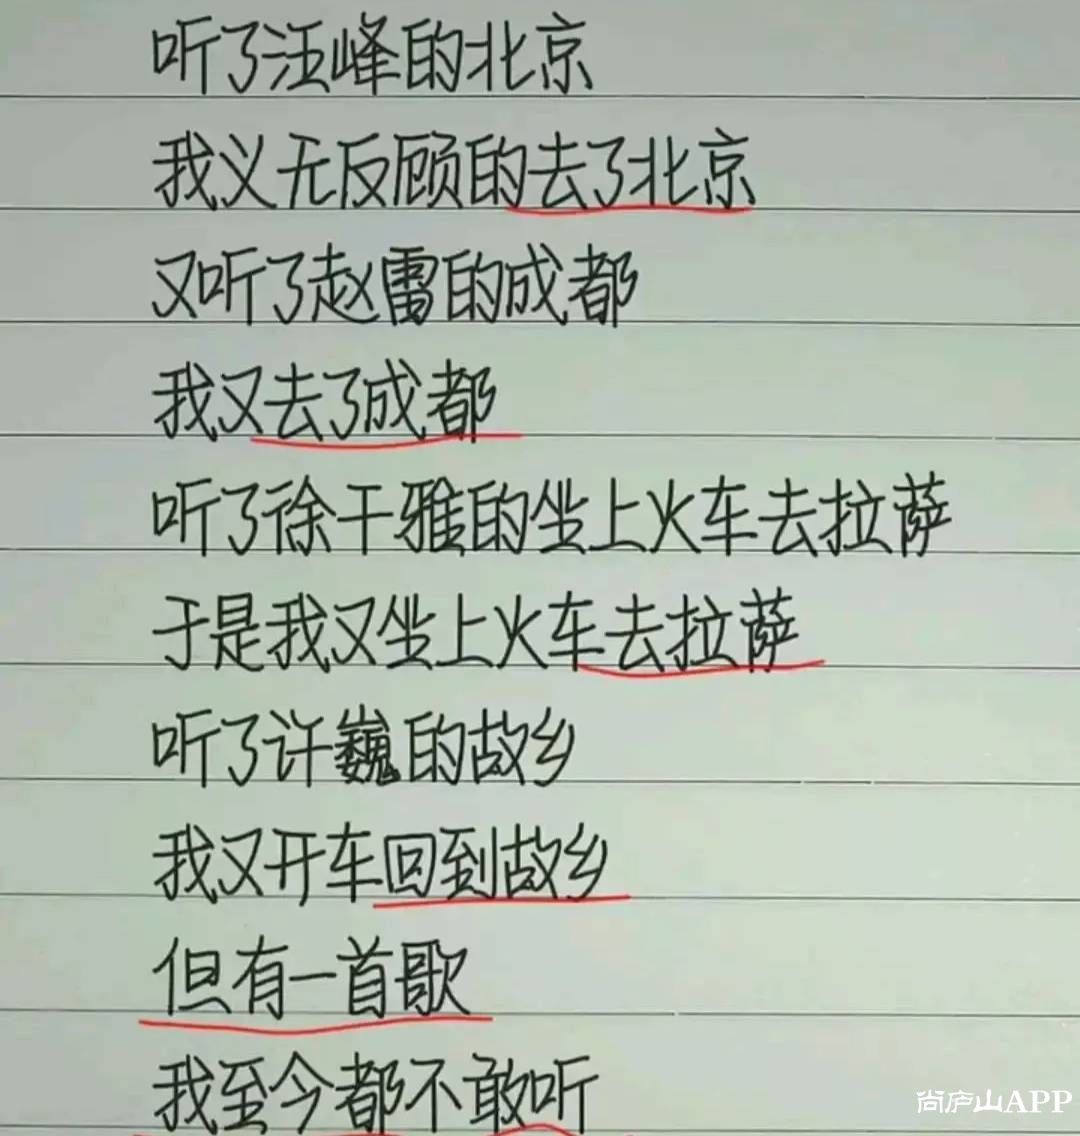 听了汪峰的北京
我义无反顾的去了北京
又听了赵雷的成都
我又去了成都
听了徐千雅的坐上火车去拉萨
于是我又坐上火车去拉萨
听了许巍的故乡
我又开车回到故乡
但有一首歌
我至今都不敢听
尚庐山APP